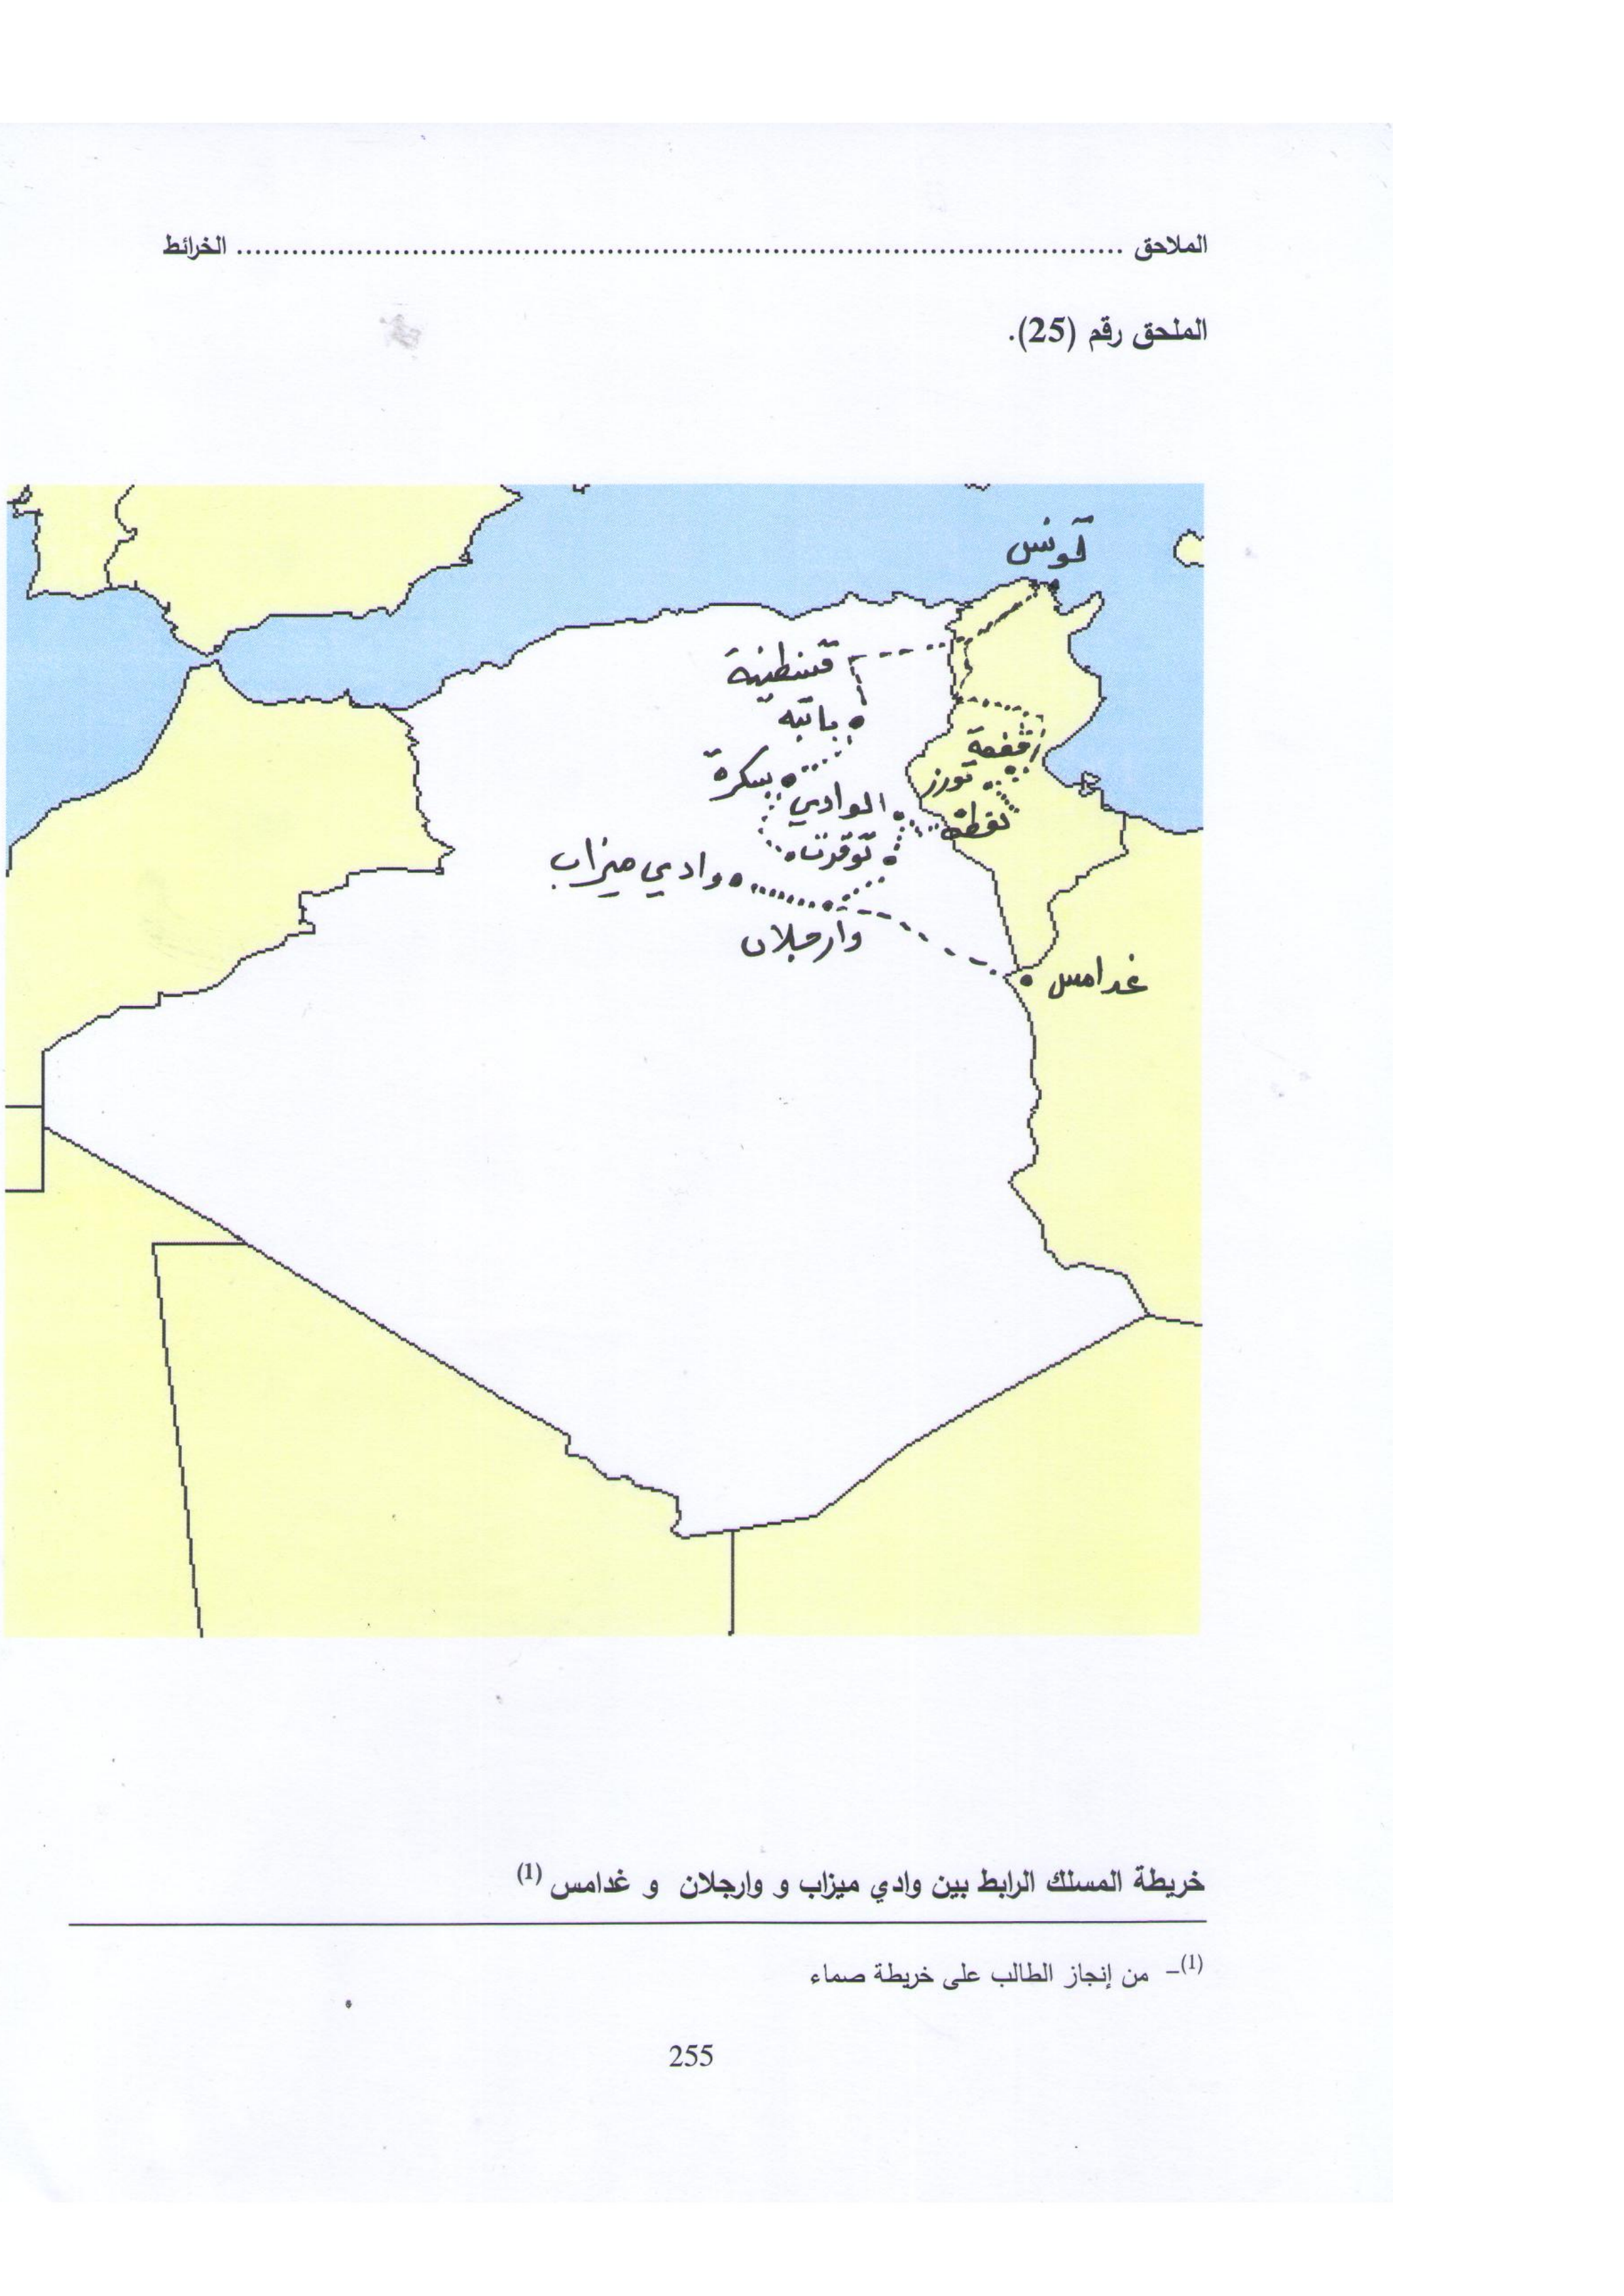 الملاحق ........................................................................................... الخرائط
الملحق رقم (25).
تونس
قسنطينة
باتنة
قفصة
بسكرة
توزر
الوادي
نفطة
توقرت
وادي ميزاب
وارجلان
غدامس
خريطة المسلك الرابط بين وادي ميزاب و وارجلان و غدامس (1)
(1)– من إنجاز الطالب على خريطة صماء
255